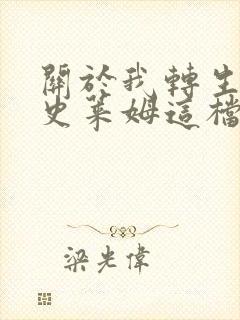 關於我轉生
史萊姆這檔
梁光偉